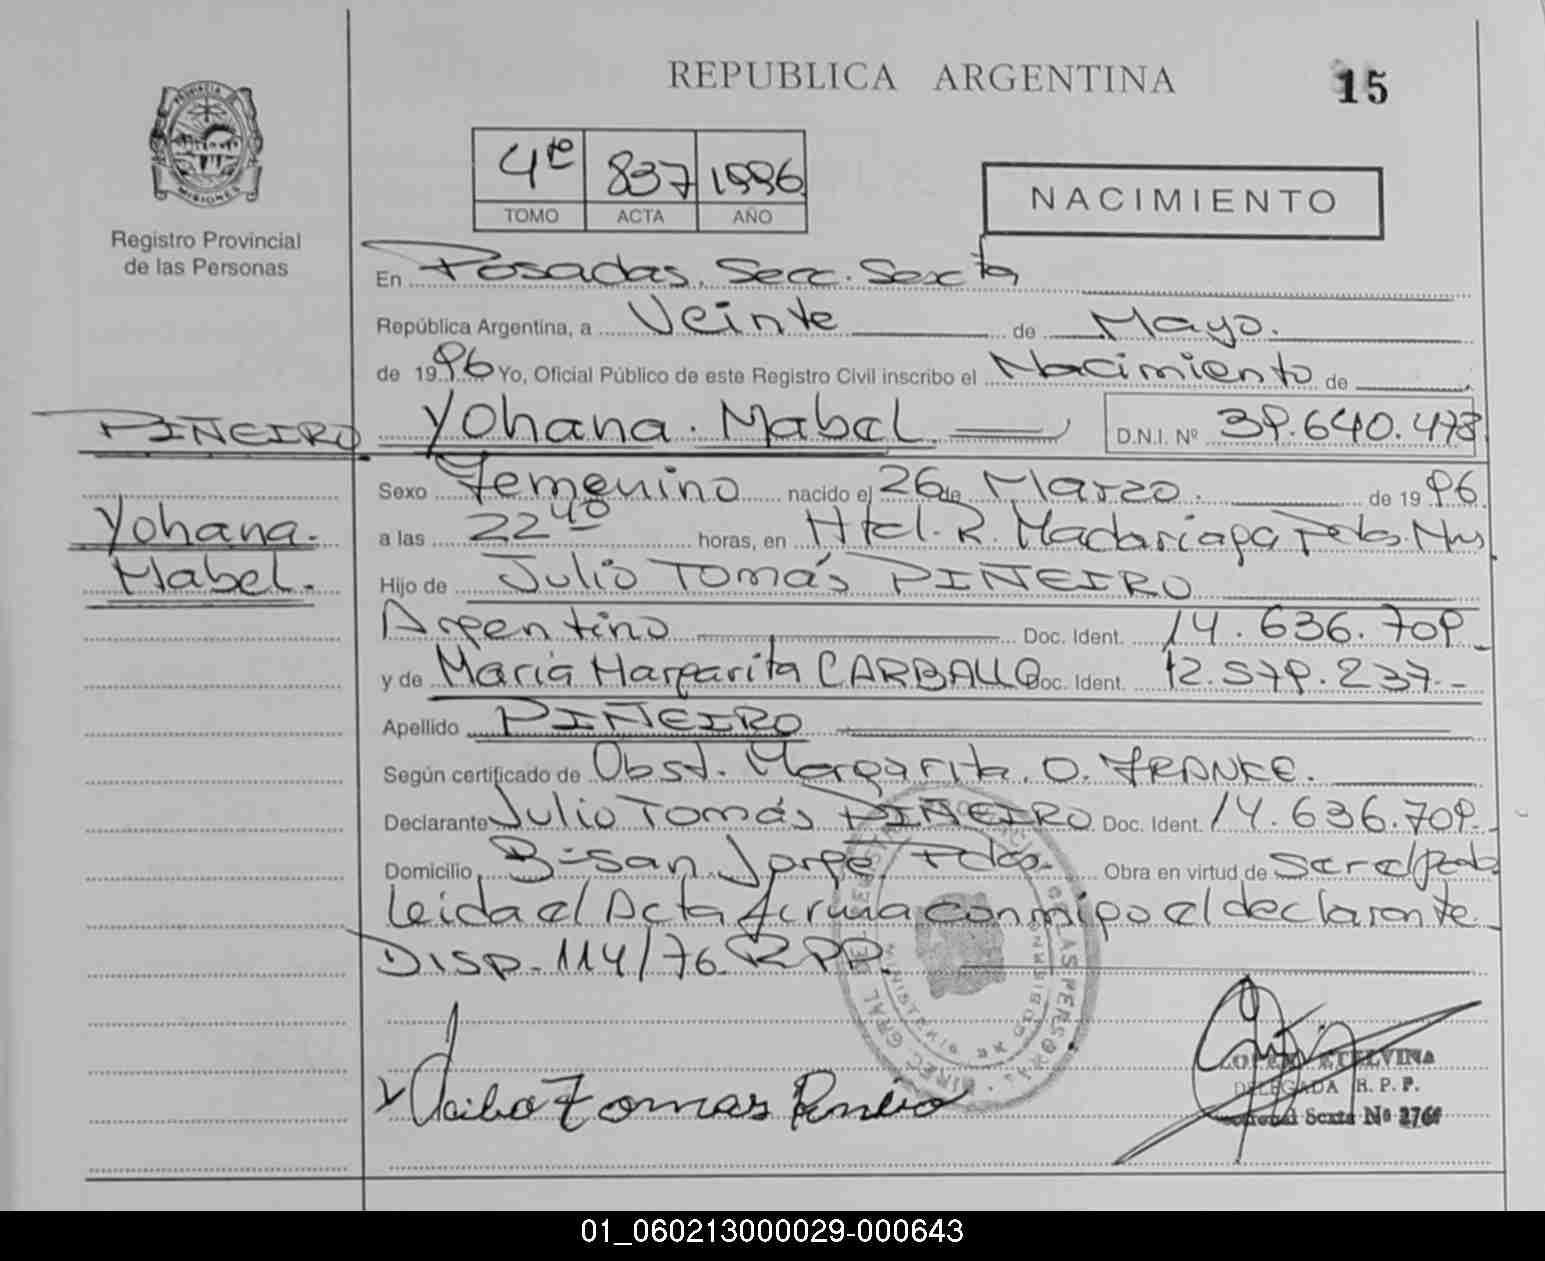 REPUBLICA ARGENTINA
15
PROVINCIA DE
MISIONES
Registro Provincial
de las Personas
4to 837 1996
TOMO ACTA AÑO
NACIMIENTO
En Posadas, Secc. Sexta
República Argentina, a Veinte de Mayo.
de 1996 Yo, Oficial Público de este Registro Civil inscribo el Nacimiento de
PIÑEIRO Yohana. Mabel D.N.I. Nº 39.640.473
Yohana.
Mabel.
Sexo Femenino nacido el 26 de Marzo. de 1996.
a las 22 40 horas, en Htal. R. Madariaga Pdas. Mns
Hijo de Julio Tomás PIÑEIRO
Argentino Doc. Ident. 14.636.709
y de María Margarita CARBALLO Doc. Ident. 12.579.237.-
Apellido PIÑEIRO
Según certificado de Obst. Margarita. O. FRANKE.
Declarante Julio Tomás PIÑEIRO Doc. Ident. 14.636.709.-
Domicilio B- San Jorge. Pdas. Obra en virtud de Ser el Padre
Leida el Acta firma conmigo el declarante.
DISP. 114/76. RPP.
Julio Tomas Piñeiro
LOPEZ ETELVINA
DELEGADA R.P.P.
Seccional Sexta Nº 276
DIREC. GRAL. DE REGISTRO PROVINCIAL DE LAS PERSONAS
MINISTERIO DE GOBIERNO
01_060213000029-000643